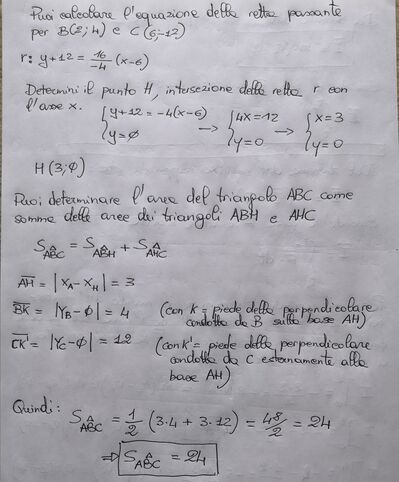 Puoi calcolare l'equazione della retta passante
per B(2;4) e C(6;-12)
r: y+12 = 16/-4 (x-6)
Determini il punto H, intersezione della retta r con
l'asse x. { y+12 = -4(x-6) y=0 → { 4x=12 y=0 → { x=3 y=0
H(3;0)
Puoi determinare l'area del triangolo ABC come
somma delle aree dei triangoli ABH e AHC
S_ABC = S_ABH + S_AHC
AH = |x_A - x_H| = 3
BK = |y_B - 0| = 4 (con K = piede della perpendicolare
condotta da B sulla base AH)
CK' = |y_C - 0| = 12 (con K' = piede della perpendicolare
condotta da C esternamente alla
base AH)
Quindi:
S_ABC = 1/2 (3·4 + 3·12) = 48/2 = 24
⇒ S_ABC = 24